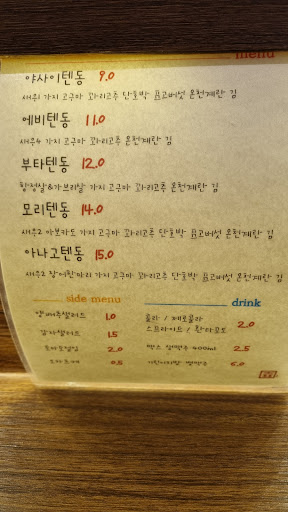 menu
야사이텐동 9.0
새우1 가지 고구마 꽈리고추 단호박 표고버섯 온천계란 김
에비텐동 11.0
새우4 가지 고구마 꽈리고추 온천계란 김
부타텐동 12.0
항정살&가브리살 가지 고구마 꽈리고추 온천계란 김
모리텐동 14.0
새우2 아보카도 가지 고구마 꽈리고추 단호박 표고버섯 온천계란 김
아나고텐동 15.0
새우2 장어한마리 가지 고구마 꽈리고추 단호박 표고버섯 온천계란 김
side menu
양배추샐러드 1.0
감자샐러드 1.5
토마토절임 2.0
0.5
drink
콜라 / 제로콜라
스프라이트 / 환타포도 2.0
맥스 생맥주 400ml 2.5
기린이치방 병맥주 6.0